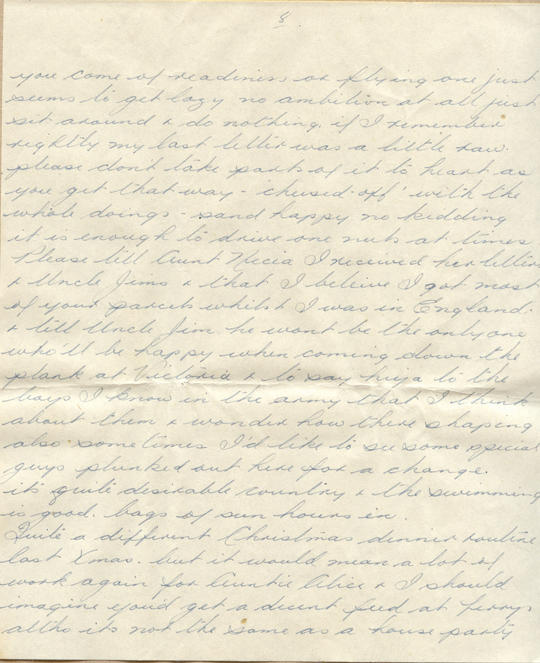 8
you come of readiness or flying one just
seems to get lazy no ambition at all just
sit around & do nothing. if I remember
rightly my last letter was a little raw.
please dont take parts of it to heart as
you get that way - cheesed-off' with the
whole doings - sand happy no kidding
it is enough to drive one nuts at times.
Please till Aunt Recia I received her letters
& Uncle Jims & that I beleive I got most
of your parcels whilst I was in England.
& till Uncle Jim he wont be the only one
who'll be happy when coming down the
plank at Victoria & to say hiya to the
boys I know in the army that I think
about them & wonder how there shaping
also. sometimes I'd like to see some special
guys plunked out here for a change.
its quite desirable country & the swimming
is good. bags of sun hours in.
Quite a different Christmas dinner routine
last Xmas. but it would mean a lot of
work again for Auntie Alice & I should
imagine you'd get a decent feed at
altho its not the same as a house party